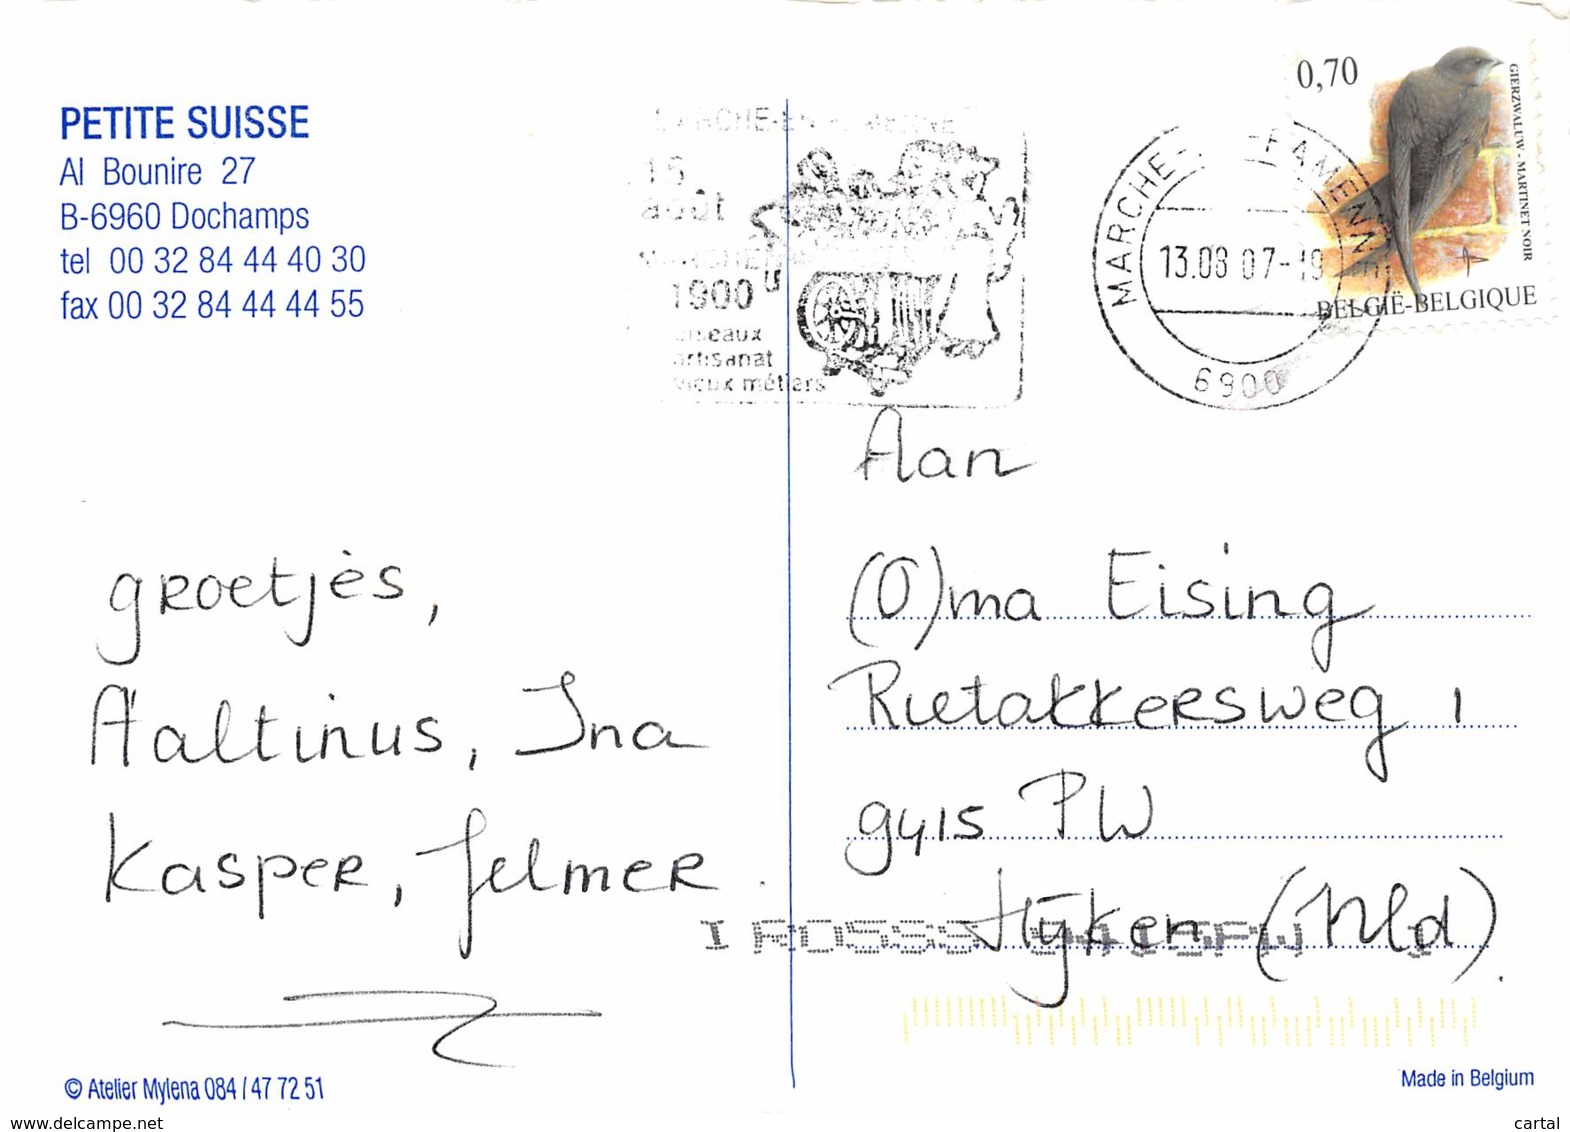 PETITE SUISSE
Al Bounire 27
B-6960 Dochamps
tel 00 32 84 44 40 30
fax 00 32 84 44 44 55
16
août
1900
oiseaux
artisanat
vieux métiers
MARCHE- -FAMENNE
13.08 07-19
6900
0,70
GIERZWALUW - MARTINET NOIR
BELGIË-BELGIQUE
Aan
(O)ma Eising
Rietakkersweg 1
9415 PW
Hijken (Nld).
groetjès,
Aaltinus, Ina
Kasper, Jelmer.
I ROSSS 9415PW 1
© Atelier Mylena 084 / 47 72 51
Made in Belgium
www.delcampe.net
cartal